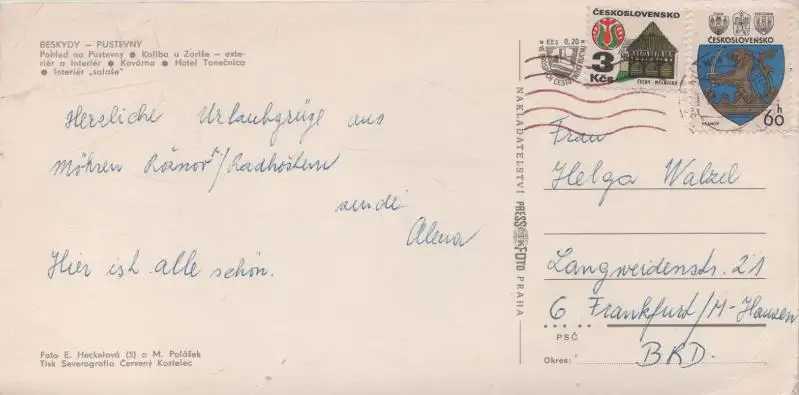 BESKYDY – PUSTEVNY
Pohled na Pústevny ● Koliba u Záriše – exte-
riér a interiér ● Kavárna ● Hotel Tanečnica
● Interiér „salaše"
Herzliche Urlaubgrüße aus
Möhren Rožnov/Radhoštem
sendet
Alena
Hier ist alle schön.
Foto E. Heckelová (5) a M. Polášek
Tisk Severografia Červený Kostelec
NAKLADATELSTVÍ PRESSFOTO PRAHA
Kčs 0,20
ČESKOSLOVENSKO
3
Kčs
ČECHY - MĚLNICKO
ČESKOSLOVENSKO
h
60
Frau
Helga Walzel
Langweidenstr. 21
6 Frankfurt/M-Hausen
PSČ
BRD.
Okres: